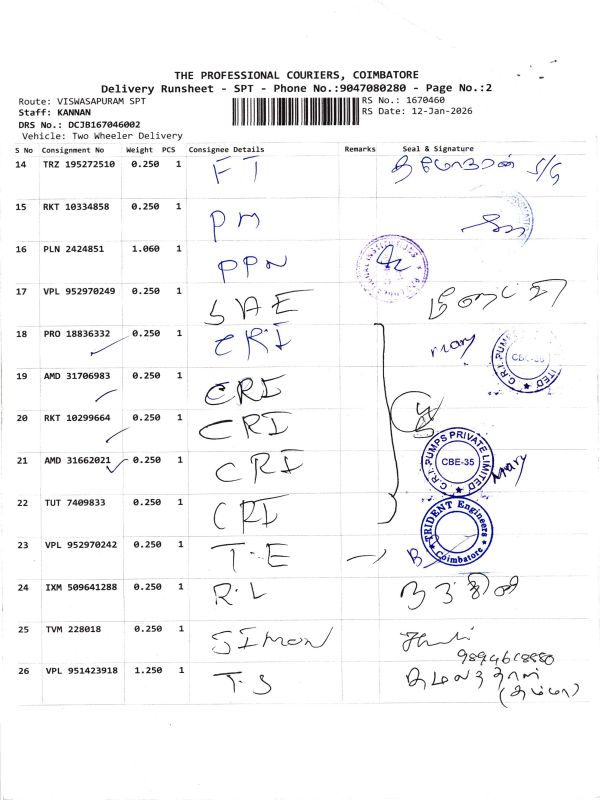 THE PROFESSIONAL COURIERS, COIMBATORE
Delivery Runsheet - SPT - Phone No.:9047080280 - Page No.:2
Route: VISWASAPURAM SPT
RS No.: 1670460
Staff: KANNAN
RS Date: 12-Jan-2026
DRS No.: DCJB167046002
Vehicle: Two Wheeler Delivery
S No Consignment No Weight PCS Consignee Details Remarks Seal & Signature
14 TRZ 195272510 0.250 1 FT S/G
15 RKT 10334858 0.250 1 PM
16 PLN 2424851 1.060 1 PPN
17 VPL 952970249 0.250 1 SAE
18 PRO 18836332 0.250 1 CRI mary
C.R.I. PUMPS CBE-35 LIMITED
19 AMD 31706983 0.250 1 CRI
20 RKT 10299664 0.250 1 CRI
21 AMD 31662021 0.250 1 CRI mary
C.R.I. PUMPS PRIVATE LIMITED CBE-35
22 TUT 7409833 0.250 1 CRI
TRIDENT Engineers Coimbatore
23 VPL 952970242 0.250 1 T.E
24 IXM 509641288 0.250 1 R.L
25 TVM 228018 0.250 1 SIMON
9894618880
26 VPL 951423918 1.250 1 T.S கமலநாதன்
(அம்மா)